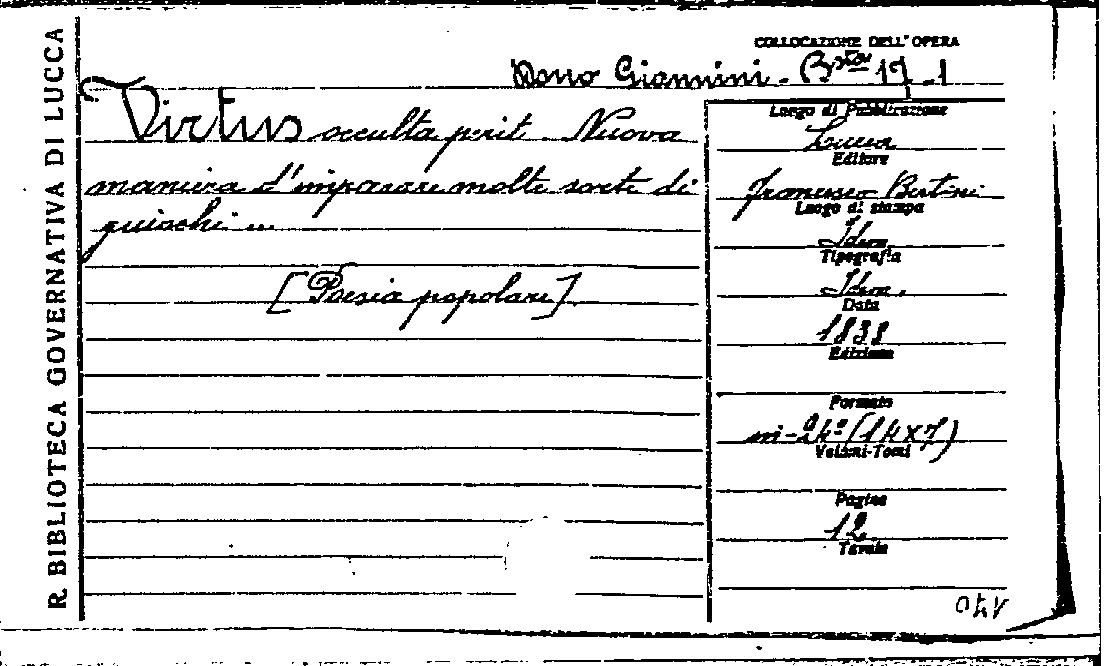 R. BIBLIOTECA GOVERNATIVA DI LUCCA
COLLOCAZIONE DELL'OPERA
Dono Giannini - Bsta 17-1
Virtus occulta perit. Nuova
maniera d'imparare molte sorte di
giuochi ...
[Poesia popolare]
Luogo di Pubblicazione
Lucca
Editore
Francesco Bertini
Luogo di stampa
Idem
Tipografia
Idem.
Data
1838
Edizione
Formato
in-24º (14x7)
Volumi-Tomi
Pagine
12
Tavole